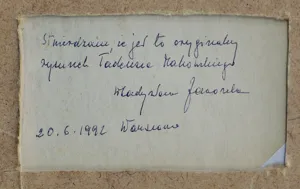 Stwierdzam, że jest to oryginalny
rysunek Tadeusza Makowskiego
Władysława Jaworska
20.6.1992 Warszawa